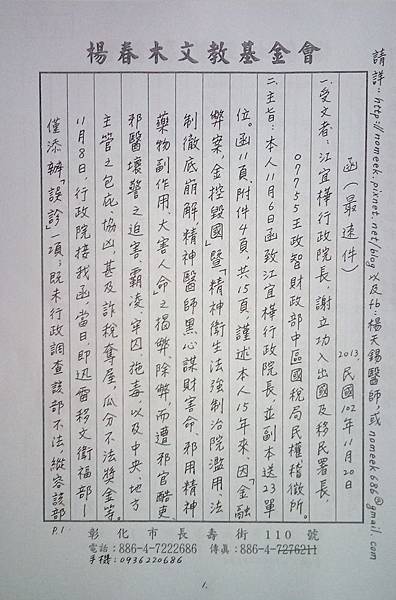 楊春木文教基金會
請詳：http://nomeek.pixnet.net/blog 以及 fb：楊天錫醫師，或 nomeek686@gmail.com
函（最速件） 2013，民國102年11月20日
一受文者：江宜樺行政院長、謝立功入出國及移民署長、
07755王政智財政部中區國稅局民權稽徵所。
二主旨：本人11月6日函致江宜樺行政院長，並副本送23單
位。函11頁、附件4頁，共15頁，謹述本人15年來，因「金融
弊案，金控毀國」暨「精神衛生法強制治院濫用、法
制徹底崩解，精神醫師黑心謀財害命，邪用精神
藥物副作用，大害人命」之揭弊、除弊，而遭邪官酷吏、
邪醫壞警之迫害、霸凌、牢囚施毒，以及中央、地方
主管之包庇協凶，甚及詐稅奪屋，瓜分不法獎金等。
11月8日，行政院接我函，當日，即迅雷移文衛福部—
僅添辦「誤診」一項；既未行政調查該部不法，縱容該部
P.1
彰化市長壽街110號
電話：886-4-7222686 傳真：886-4-7276211
手機：0936220686
1.